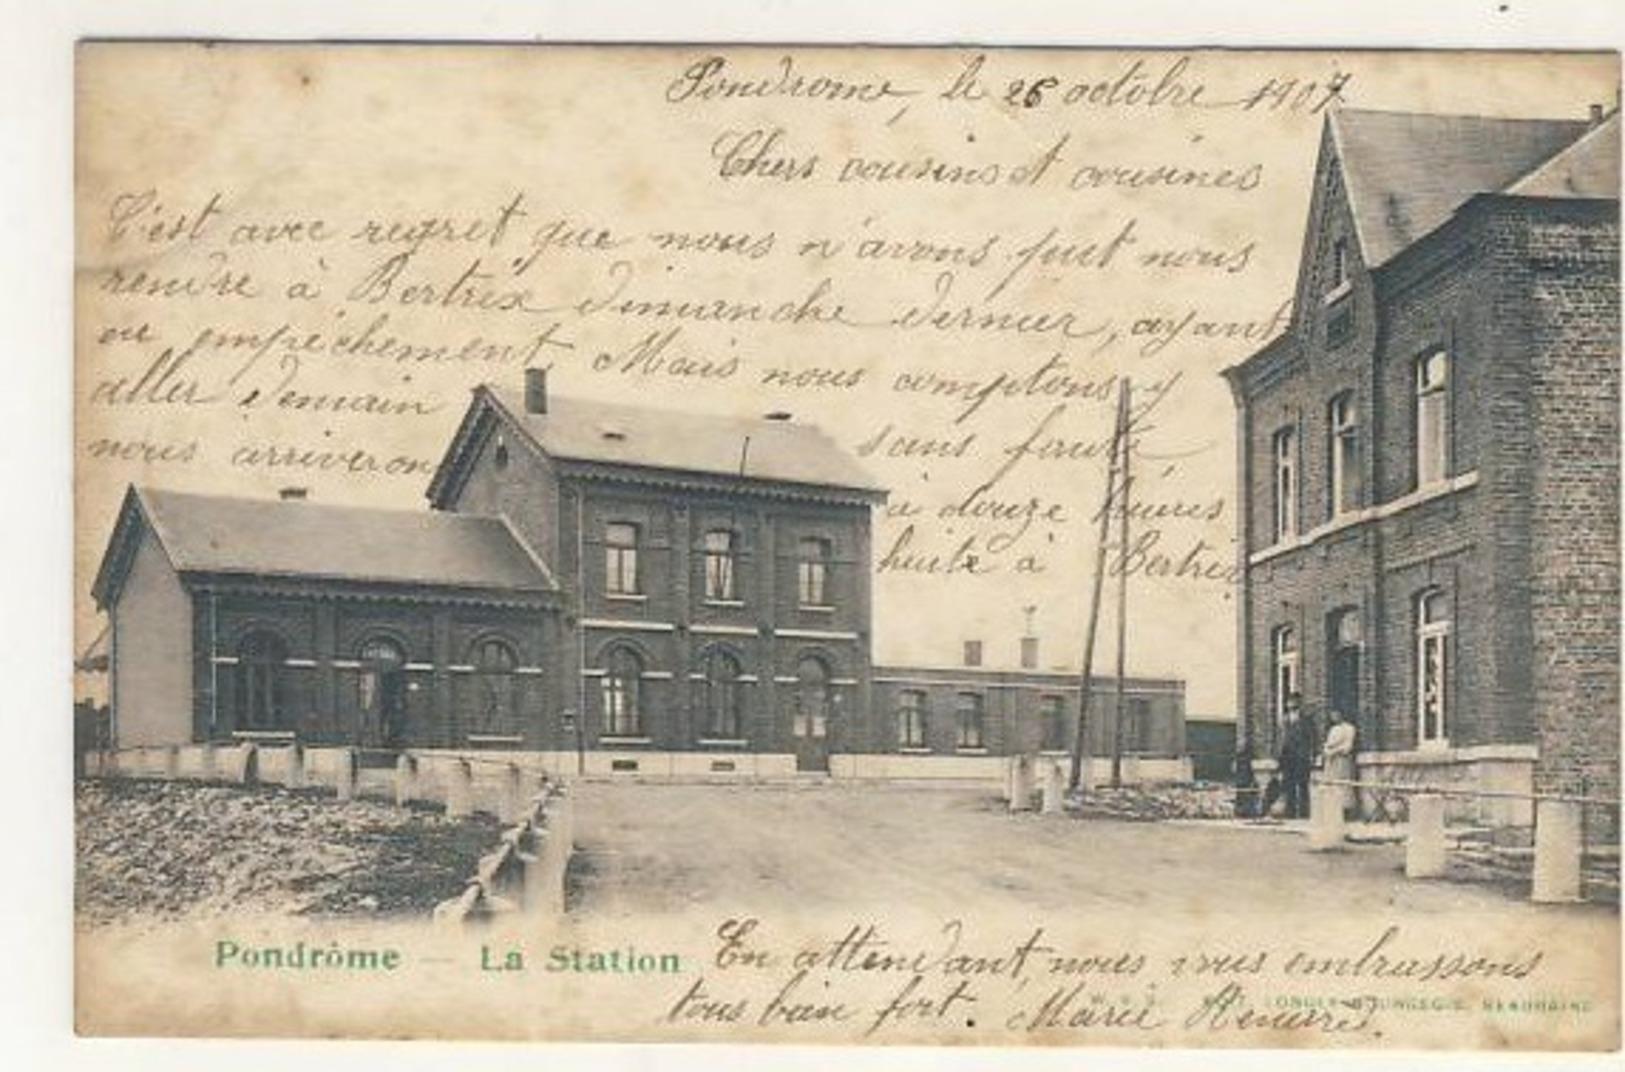 Pondrome, le 26 octobre 1907
Chers cousins et cousines
C'est avec regret que nous n'avons put nous
rendre à Bertrix dimanche dernier, ayant
eu empéchement. Mais nous comptons y
aller demain sans faute,
nous arriverons à douze heures
huite à Bertrix
Pondrôme — La Station
En attendant, nous vous embrassons
tous bien fort. Marie